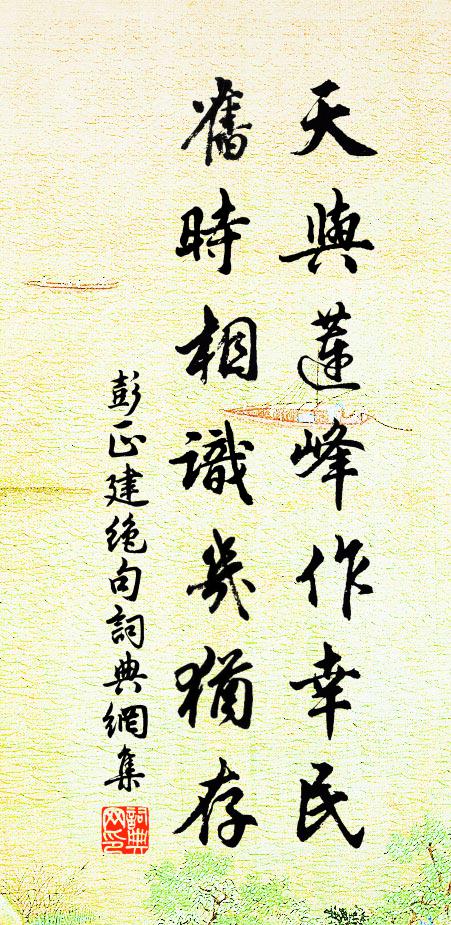 天與蓮峰作幸民
舊時相識幾猶存
彭正建絶句詞典網集
詞典網印